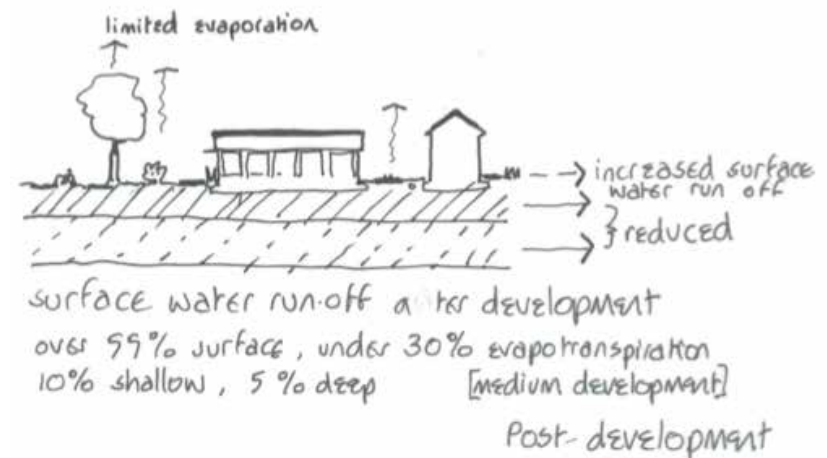 limited evaporation
increased surface
water run off
reduced
surface water run-off after development
over 55% surface, under 30% evapotranspiration
10% shallow, 5% deep [medium development]
Post-development